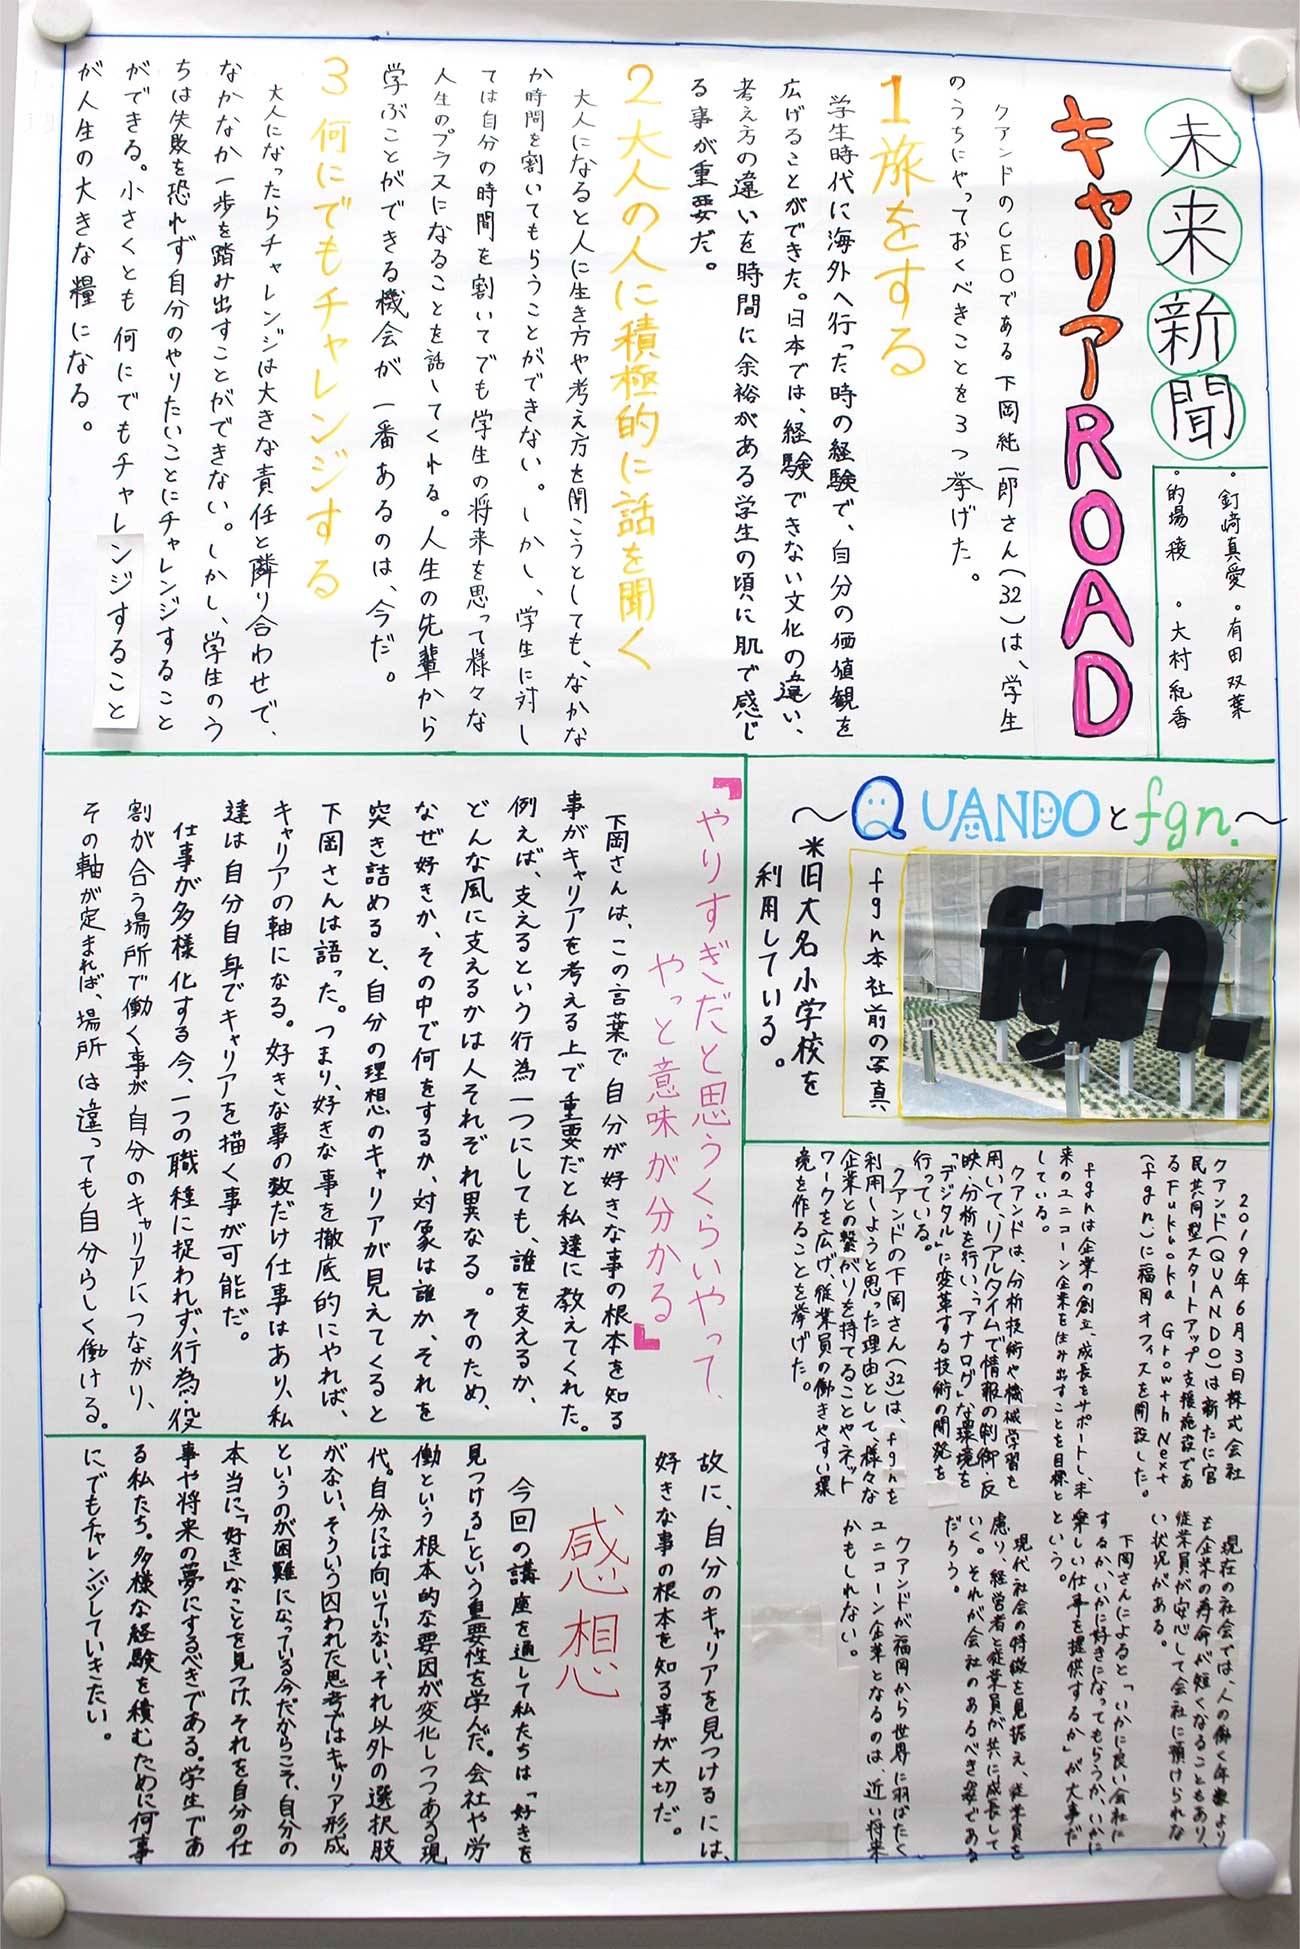 未来新聞
・釘崎真愛・有田双葉
・的場稜 ・大村紀香
キャリアROAD
クアンドのCEOである下岡純一郎さん(32)は、学生
のうちにやっておくべきことを3つ挙げた。
1 旅をする
学生時代に海外へ行った時の経験で、自分の価値観を
広げることができた。日本では、経験できない文化の違い、
考え方の違いを時間に余裕がある学生の頃に肌で感じ
る事が重要だ。
2 大人の人に積極的に話を聞く
大人になると人に生き方や考え方を聞こうとしても、なかな
か時間を割いてもらうことができない。しかし、学生に対し
ては自分の時間を割いてでも学生の将来を思って様々な
人生のプラスになることを話してくれる。人生の先輩から
学ぶことができる機会が一番あるのは、今だ。
3 何にでもチャレンジする
大人になったらチャレンジは大きな責任と隣り合わせで、
なかなか一歩を踏み出すことができない。しかし、学生のう
ちは失敗を恐れず自分のやりたいことにチャレンジすること
ができる。小さくとも何にでもチャレンジすること
が人生の大きな糧になる。
〜QUANDOとfgn.〜
fgn.
fgn本社前の写真
※旧大名小学校を
利用している。
2019年6月3日株式会社
クアンド(QUANDO)は新たに官
民共同型スタートアップ支援施設であ
るFukuoka Growth Next
(fgn.)に福岡オフィスを開設した。
fgnは企業の創立、成長をサポートし、未
来のユニコーン企業を生み出すことを目標と
している。
クアンドは、分析技術や機械学習を
用いて、リアルタイムで情報の制御・反
映・分析を行い、「アナログ」な環境を
「デジタル」に変革する技術の開発を
行っている。
クアンドの下岡さん(32)は、fgnを
利用しようと思った理由として、様々な
企業との繋がりを持てることやネット
ワークを広げ、従業員の働きやすい環
境を作ることを挙げた。
現在の社会では、人の働く年数より
も企業の寿命が短くなることもあり、
従業員が安心して会社に預けられな
い状況がある。
下岡さんによると「いかに良い会社に
するか、いかに好きになってもらうか、いかに
楽しい仕事を提供するか」が大事だ
という。
現代社会の特徴を見据え、従業員を
慮り、経営者と従業員が共に成長して
いく。それが会社のあるべき姿であるな
だろう。
クアンドが福岡から世界に羽ばたく
ユニコーン企業となるのは、近い将来
かもしれない。
「やりすぎだと思うくらいやって、
やっと意味が分かる」
下岡さんは、この言葉で自分が好きな事の根本を知る
事がキャリアを考える上で重要だと私達に教えてくれた。
例えば、支えるという行為一つにしても、誰を支えるか、
どんな風に支えるかは人それぞれ異なる。そのため、
なぜ好きか、その中で何をするか、対象は誰か、それを
突き詰めると、自分の理想のキャリアが見えてくると
下岡さんは語った。つまり、好きな事を徹底的にやれば、
キャリアの軸になる。好きな事の数だけ仕事はあり、私
達は自分自身でキャリアを描く事が可能だ。
仕事が多様化する今、一つの職種に捉われず、行為・役
割が合う場所で働く事が自分のキャリアにつながり、
その軸が定まれば、場所は違っても自分らしく働ける。
故に、自分のキャリアを見つけるには、
好きな事の根本を知る事が大切だ。
感想
今回の講座を通して私たちは「好きを
見つける」という重要性を学んだ。会社や労
働という根本的な要因が変化しつつある現
代。自分には向いていない、それ以外の選択肢
がない、そういう囚われた思考ではキャリア形成
というのが困難になっている今だからこそ、自分の
本当に「好き」なことを見つけ、それを自分の仕
事や将来の夢にするべきである。学生であ
る私たち。多様な経験を積むために何事
にでもチャレンジしていきたい。